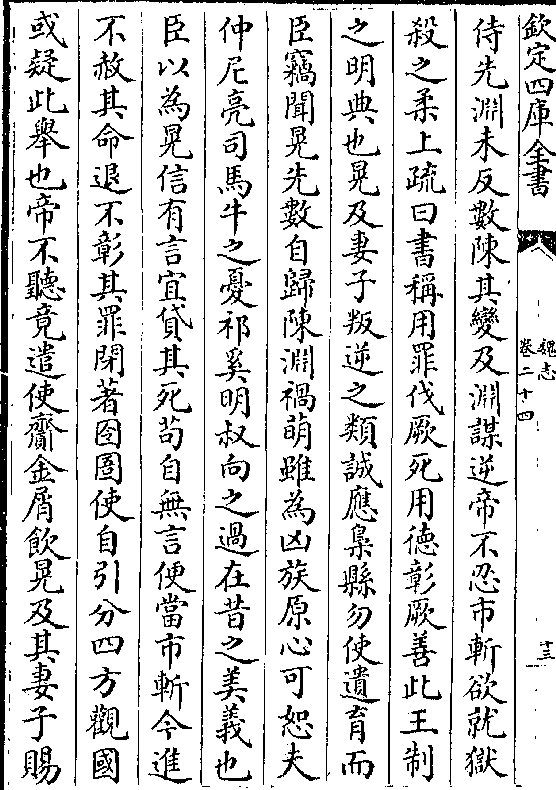 欽定四庫全書
魏志
卷二十四
十三
侍先淵未反數陳其變及淵謀逆帝不忍市斬欲就獄
殺之柔上疏曰書稱用罪伐厥死用德彰厥善此王制
之明典也晃及妻子叛逆之類誠應梟縣勿使遺育而
臣竊聞晃先數自歸陳淵禍萌雖為凶族原心可恕夫
仲尼亮司馬牛之憂祁奚明叔向之過在昔之美義也
臣以為晃信有言宜貸其死苟自無言便當市斬今進
不赦其命退不彰其罪閉著囹圄使自引分四方觀國
或疑此舉也帝不聽竟遣使齎金屑飲晃及其妻子賜